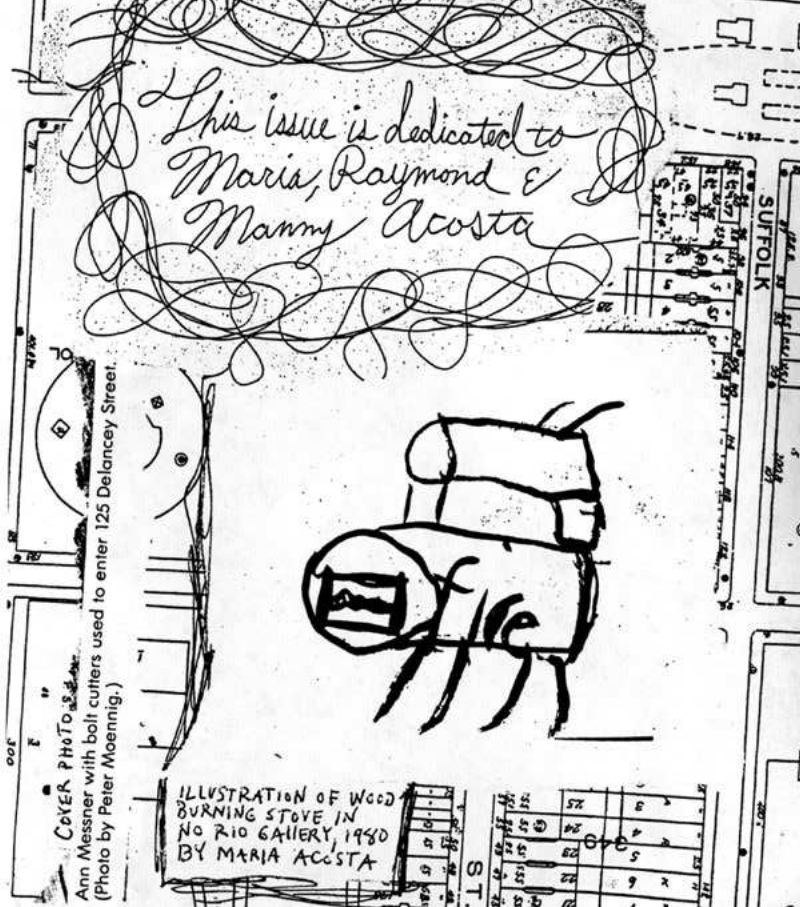 This issue is dedicated to
Maria, Raymond &
Manny Acosta
SUFFOLK
OL
fire
COVER PHOTO:
Ann Messner with bolt cutters used to enter 125 Delancey Street.
(Photo by Peter Moennig.)
300
ILLUSTRATION OF WOOD
BURNING STOVE IN
NO RIO GALLERY, 1980
BY MARIA ACOSTA
ST.
349